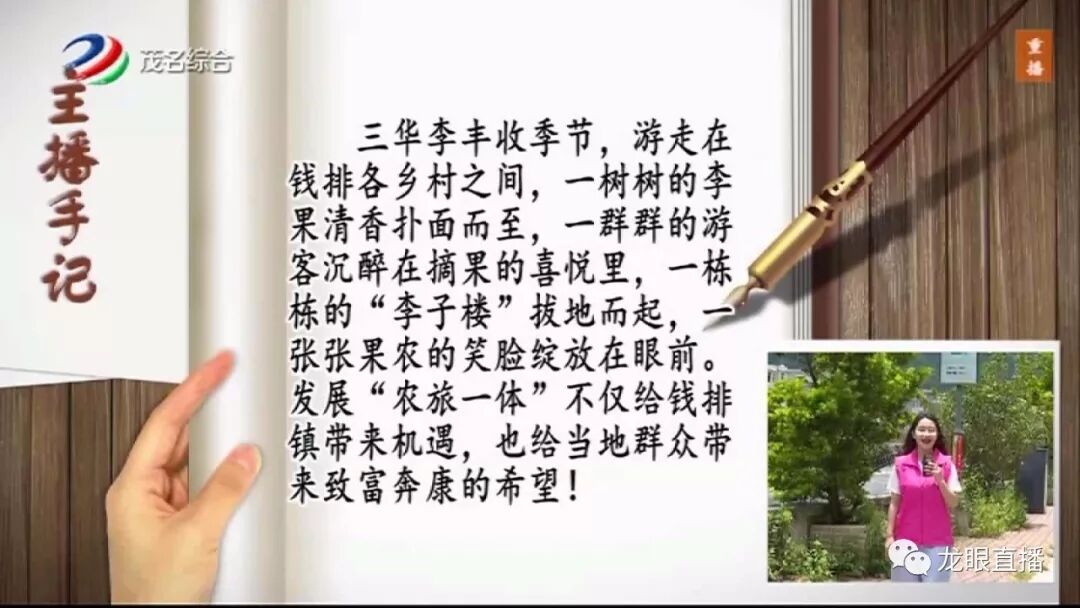 茂名综合
重播
主播手记
三华李丰收季节，游走在
钱排各乡村之间，一树树的李
果清香扑面而至，一群群的游
客沉醉在摘果的喜悦里，一栋
栋的“李子楼”拔地而起，一
张张果农的笑脸绽放在眼前。
发展“农旅一体”不仅给钱排
镇带来机遇，也给当地群众带
来致富奔康的希望！
龙眼直播